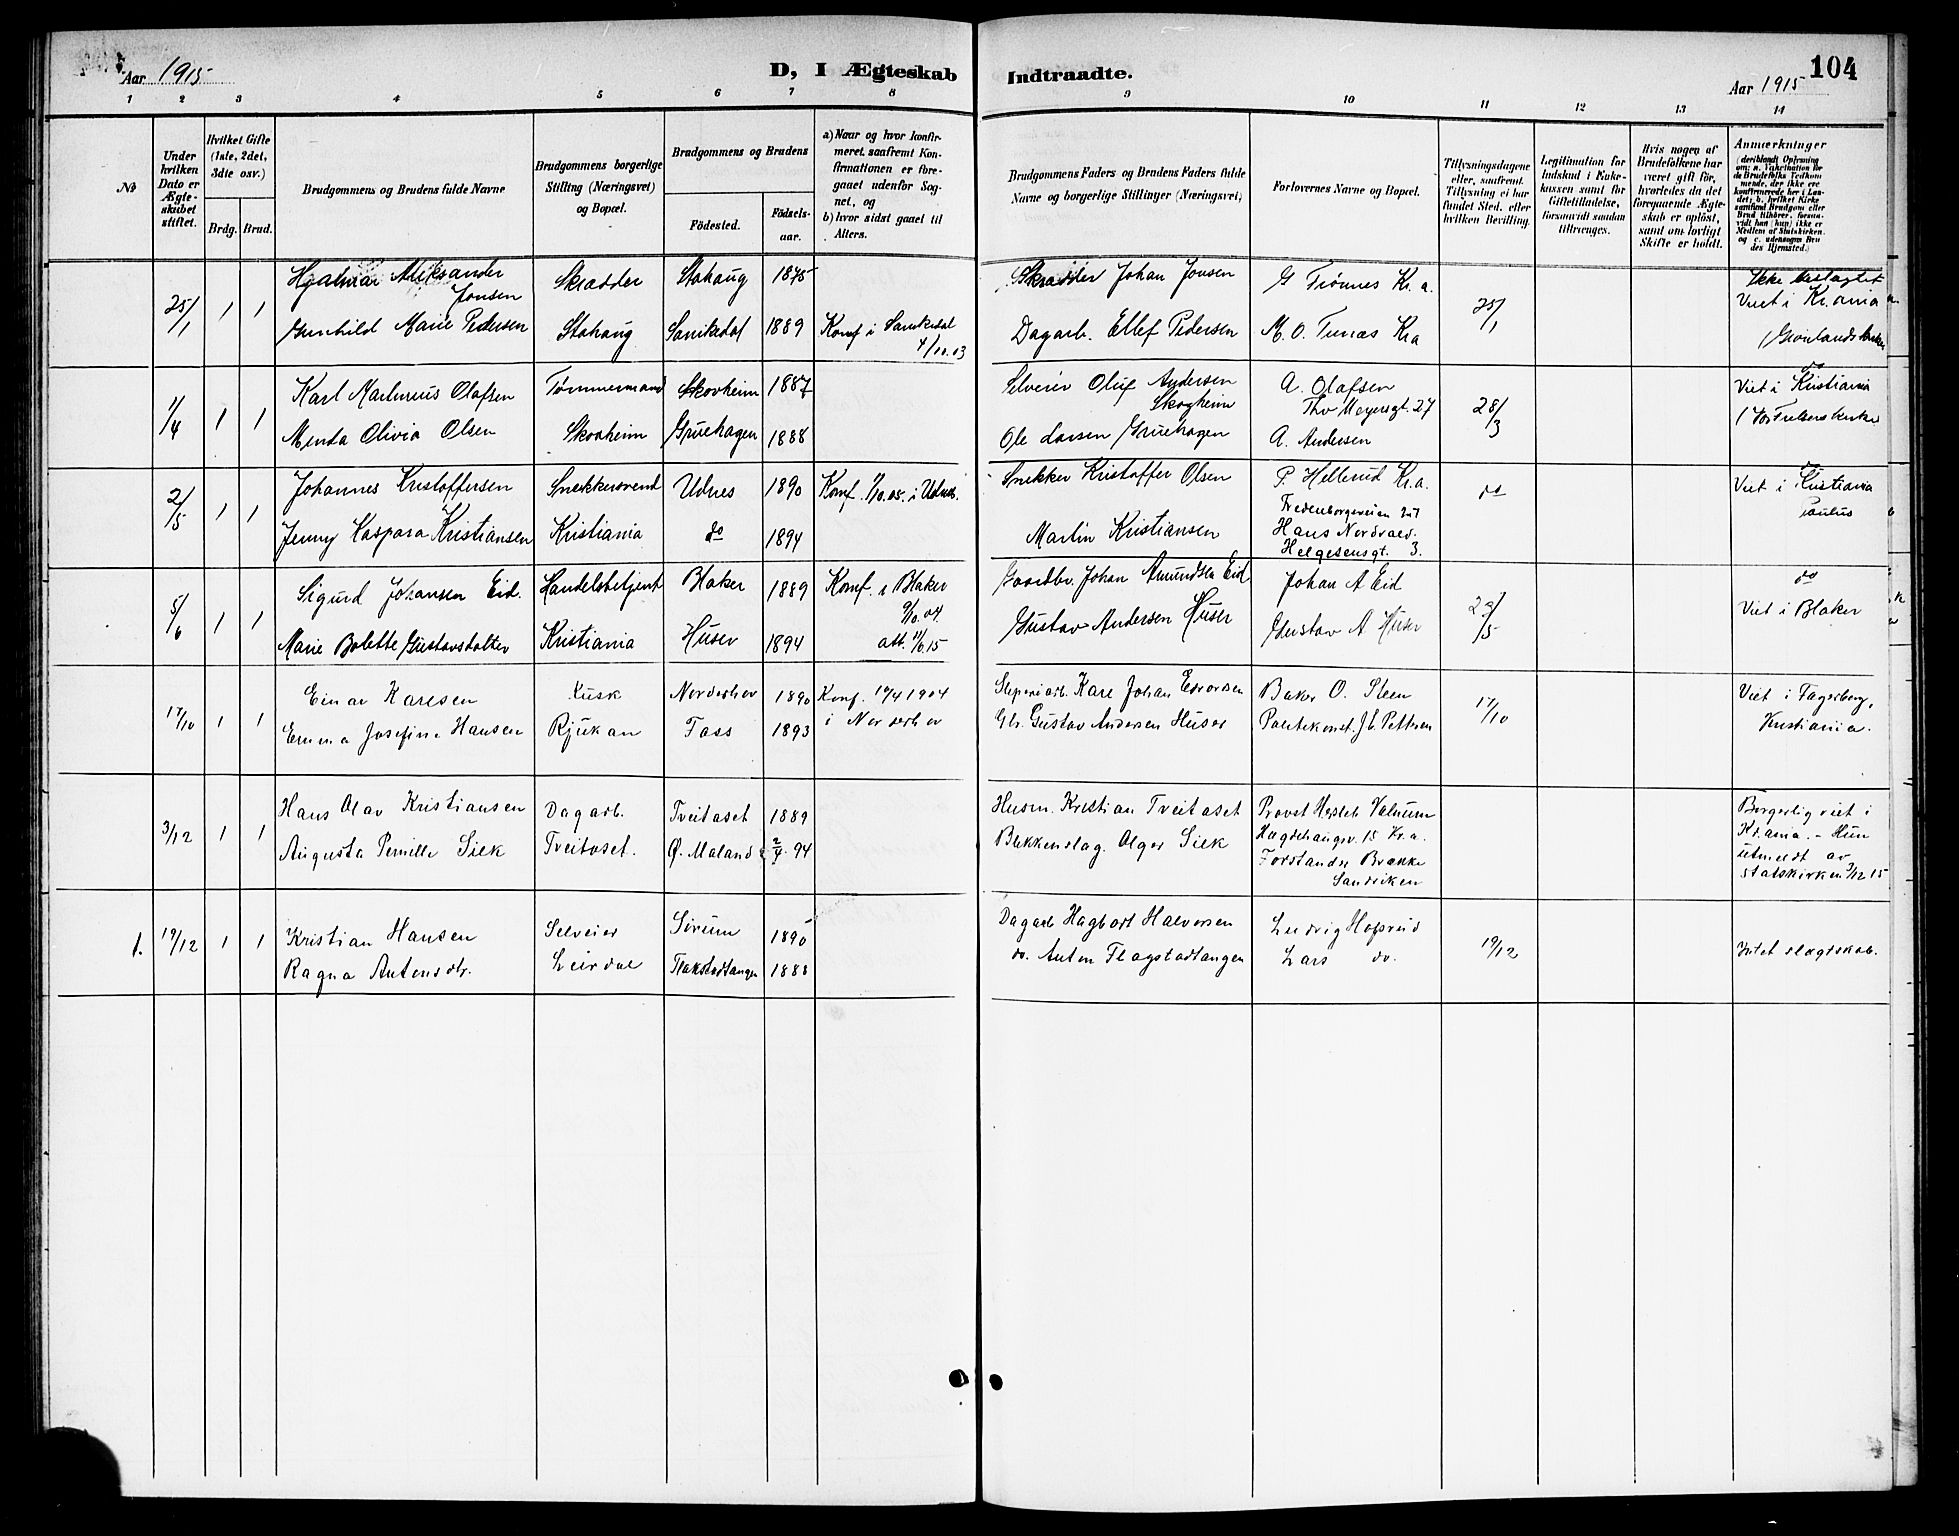 Aar 1915
D, I Ægteskab
Indtraadte.
104
Aar 1915
1 2 3 4 5 6 7 8 9 10 11 12 13 14
No
Under hvilken Dato er Ægteskabet stiftet.
Hvilket Gifte (1ste, 2det, 3die osv.)
Brdg. Brud.
Brudgommens og Brudens fulde Navne
Brudgommens borgerlige Stilling (Næringsvei) og Bopæl.
Brudgommens og Brudens
Fødested.
Fødselsaar.
a) Naar og hvor konfirmeret, saafremt Konfirmationen er foregaaet udenfor Sognet, og
b) hvor sidst gaaet til Alters.
Brudgommens Faders og Brudens Faders fulde Navne og borgerlige Stillinger (Næringsvei)
Forlovernes Navne og Bopæl.
Tillysningsdagene eller, saafremt Tillysning ei har fundet Sted, efter hvilken Bevilling.
Legitimation for Indskud i Enkekassen samt for Giftetilladelse, forsaavidt saadan tiltrænges.
Hvis nogen af Brudefolkene har været gift før, hvorledes da det foregaaende Ægteskab er opløst, samt om lovligt Skifte er holdt.
Anmærkninger
25/1 1 1 Hjalmar Aleksander Jonsen Skrædder Stahaug 1875 Skrædder Johan Jonsen G Trønnes Kr.a. 25/1 Ikke beslægtet Viet i Kr.ania
Gunhild Marie Pedersen Stahaug Sanikedal 1889 Konf i Sanikedal 4/10.03 Dagarb. Ellef Pedersen M. O. Tunæs Kra (Grønlands kirke
1/4 1 1 Karl Marinius Olafsen Tømmermand Skovheim 1887 Selveier Oluf Andersen Skogheim A. Olafsen Thv Meyersgt. 27 28/3 do Viet i Kristiania
Menda Olivia Olsen Skovheim Gruehagen 1888 Ole Larsen Gruehagen A. Andersen (Vor Frelsers kirke
2/5 1 1 Johannes Kristoffersen Snekkersvend Udnes 1890 Konf. 1/10.05. i Udnes. Snekker Kristoffer Olsen P. Hellerud Kr.a. do Viet i Kristiania
Fredensborgveien
Paulus
Jenny Kaspara Kristiansen Kristiania do 1894 Martin Kristiansen Hans Nordraed. Helgesensgt. 3.
5/6 1 1 Sigurd Johansen Eid. Handelsbetjent Blaker 1889 Konf. i Blaker 9/10.04. Gaardbr. Johan Amundsen Eid Johan A Eid do
Marie Bolette Gustavsdatter Kristiania Huser 1894 Gustav Andersen Huser Gustav A Huser Viet i Blaker
17/10 1 1 Einar Karlsen Kusk Norderhov 1890 Konf. 10/4 1904 i Norderhov Sliperiarb. Karl Johan Edvardsen Baker O. Steen 17/10 Viet i Fagerborg,
Emma Josefine Hansen Rjukan Foss 1893 Gbr. Gustav Andersen Huser Politikonst. J. L. Pettersen Kristiania.
3/12 1 1 Hans Olav Kristiansen Dagarb. Tveitaset 1889 Husm. Kristian Tveitaset Provst Hersleb Valnum Borgerlig viet i
Augusta Pernille Siek Tveitaset. Ø. Maland 2/4 94 Blikkenslag. Olger Siek Hægdehaugsv. 15 Kr.a. Kr.ania. - Hun
Forstander Brække utmeldt av
Sandviken statskirken 3/12 15
1. 19/12 1 1 Kristian Hansen Selveier Sørum 1890 Dagarb Hagbart Halvorsen Ludvig Hofsrud 19/12 Intet slægtskab.
Ragna Antonsdtr. Leirdal Flakstadtangen 1888 do. Anton Flagstadtangen Lars do.